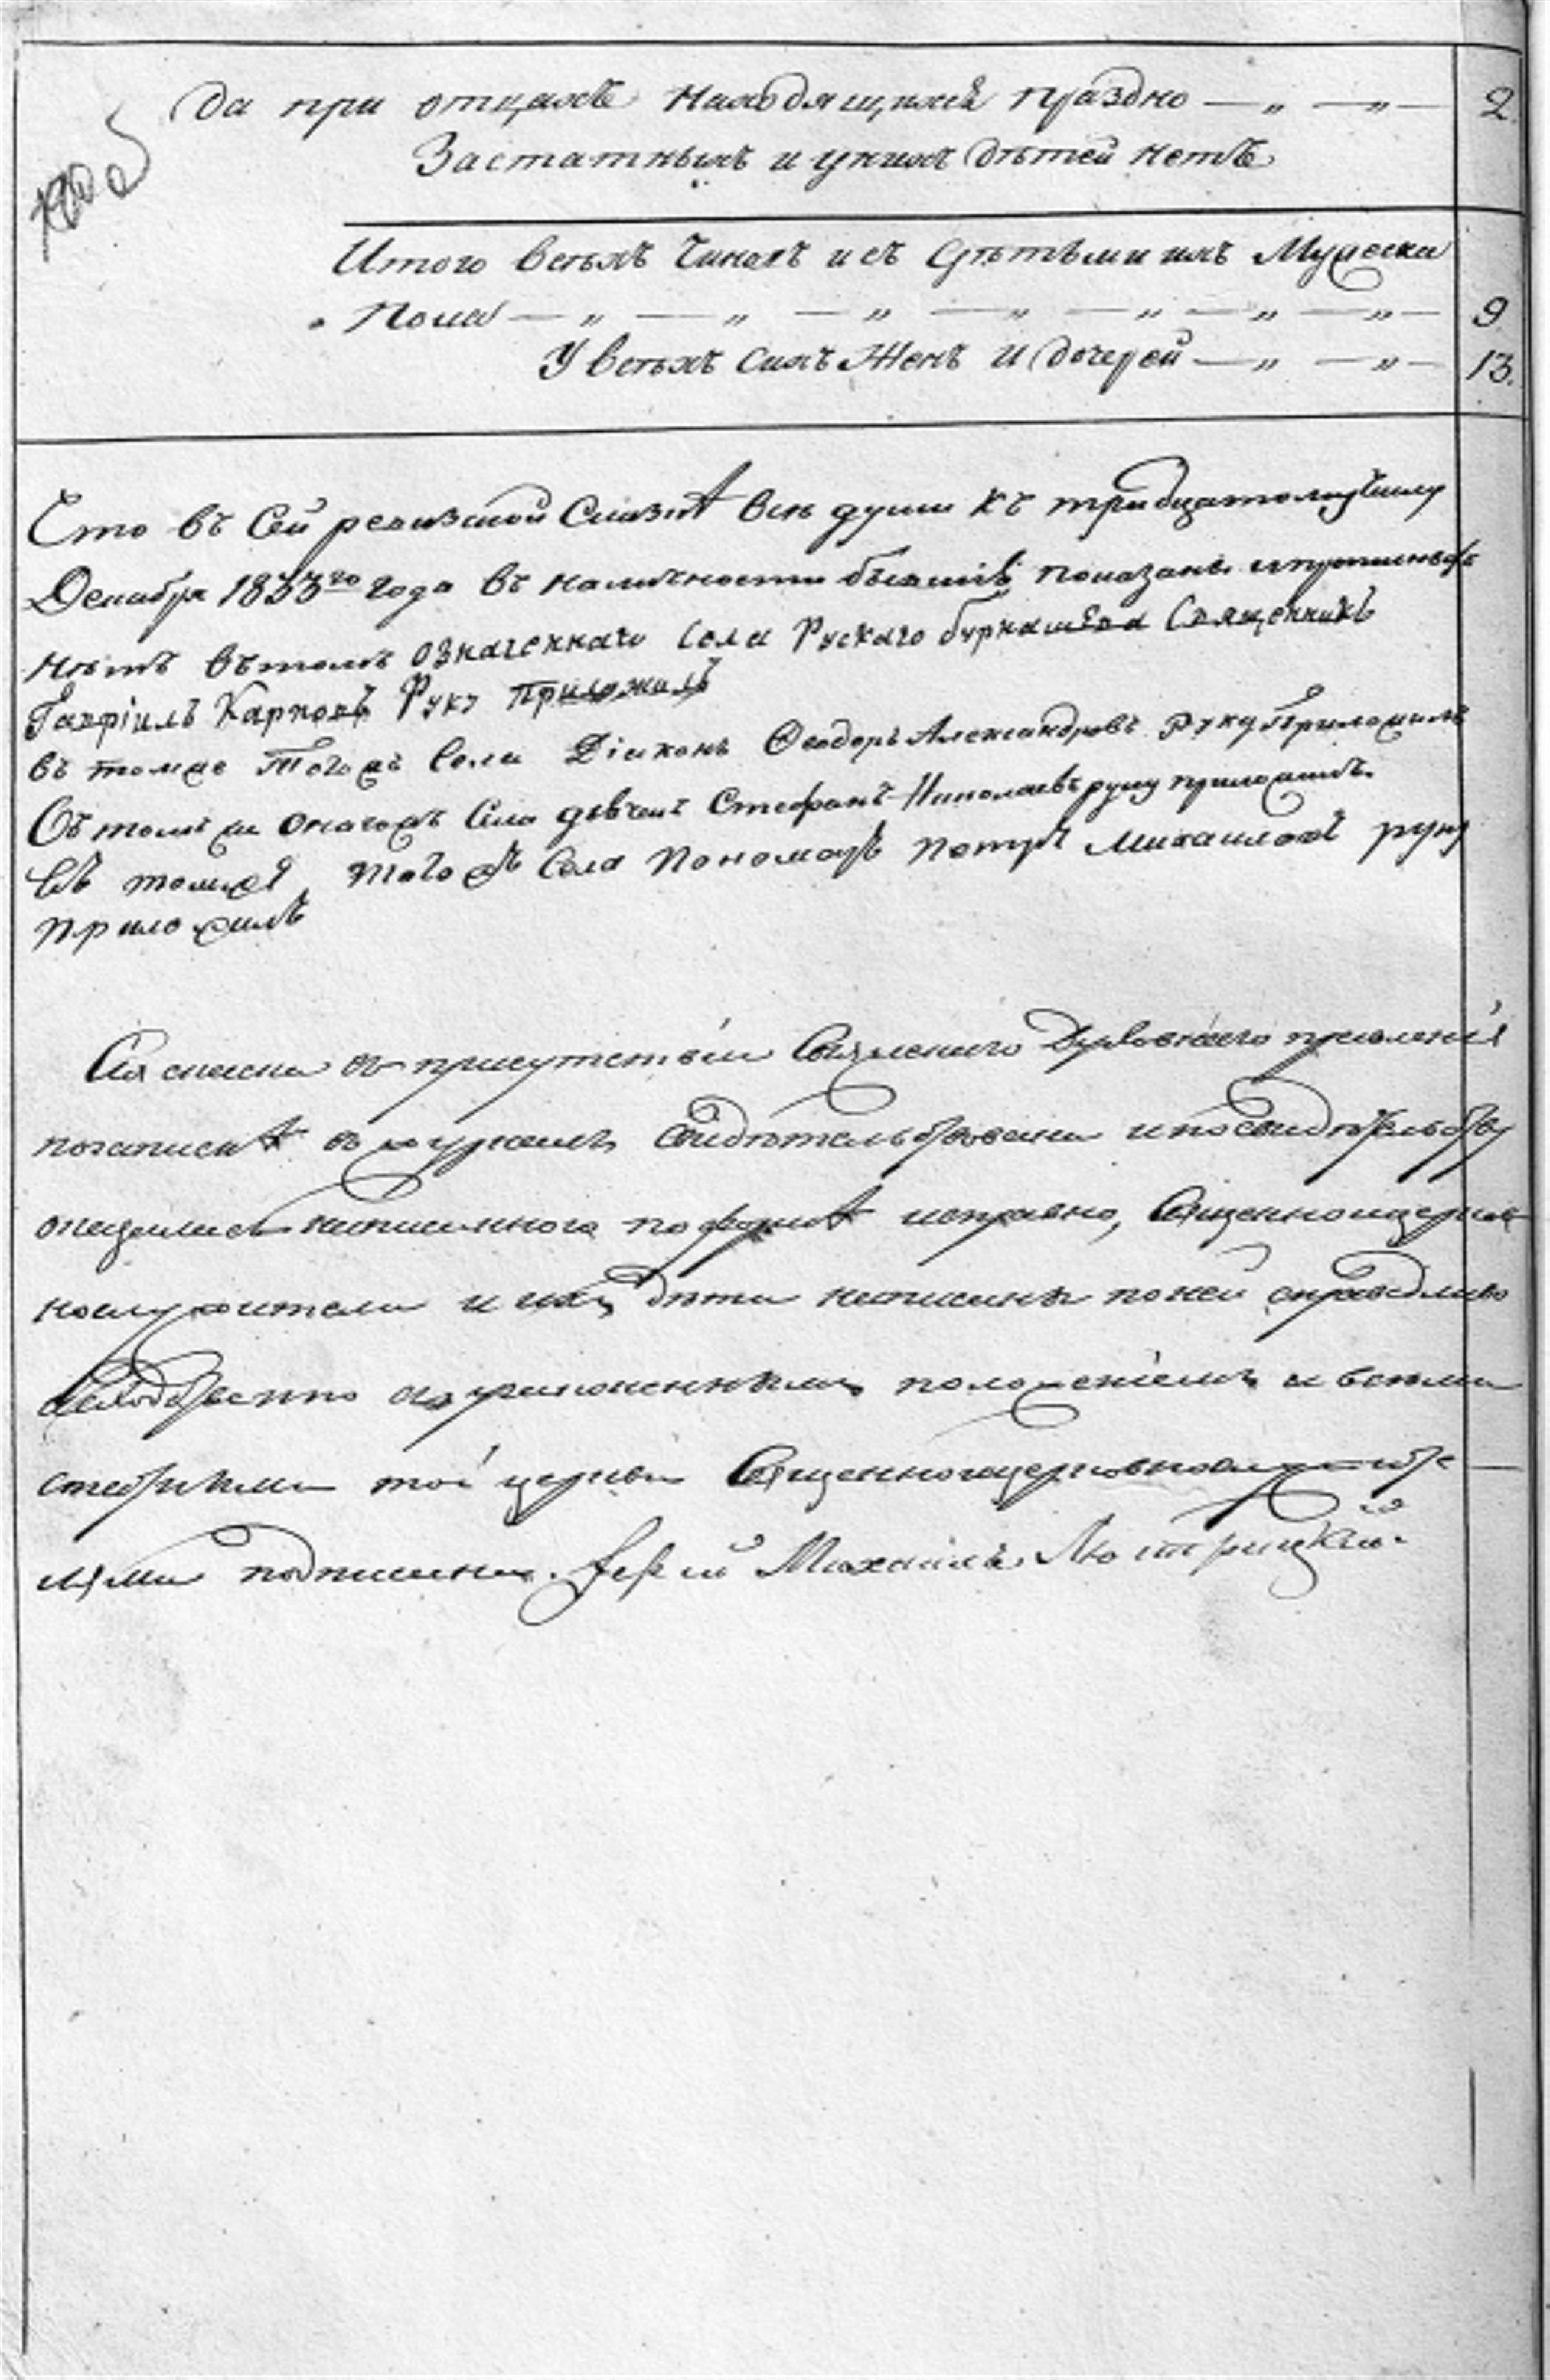 да при отцахъ находящихся праздно — „ — „ — 2.
Застатныхъ и уних дѣтей нетъ
Итого всѣхъ чиновъ исъ дѣтьми ихъ Мужеска
Пола — „ — „ — „ — „ — „ — „ — „ — 9
У всѣхъ сихъ Женъ и дочерей — „ — „ — 13.
Что въ Сей ревизской Сказкѣ всѣ души къ тридцатому числу
Декабря 1833го года въ наличности бывшiе показаны ипропущеныхъ
нѣтъ вътомъ означеннаго Села Рускаго Бурнашева Священникъ
Гавріилъ Карповъ Руку Приложилъ
въ томже Тогожъ Села Діаконъ Ѳеодоръ Александровъ Руку Приложилъ
Въ томъ же онагожъ Села дьячекъ Стефанъ Николаевъ руку приложилъ.
Въ томже тогожъ Села Пономарь Петръ Михаиловъ руку
приложилъ
Сія сказка въ присутствіи Свіяжскаго Духовнаго правленія
позапискѣ въ журналъ свидѣтельствована ипосвидѣтельству
оказалась написанною поформѣ исправно, Священноицерков
нослужители и ихъ дѣти написаны поней справедливо
сходственно съ узаконеннымъ положеніемъ и всѣми
наличными той церкви Священноицерковнослужите
лями подписана. Іерей Михаилъ